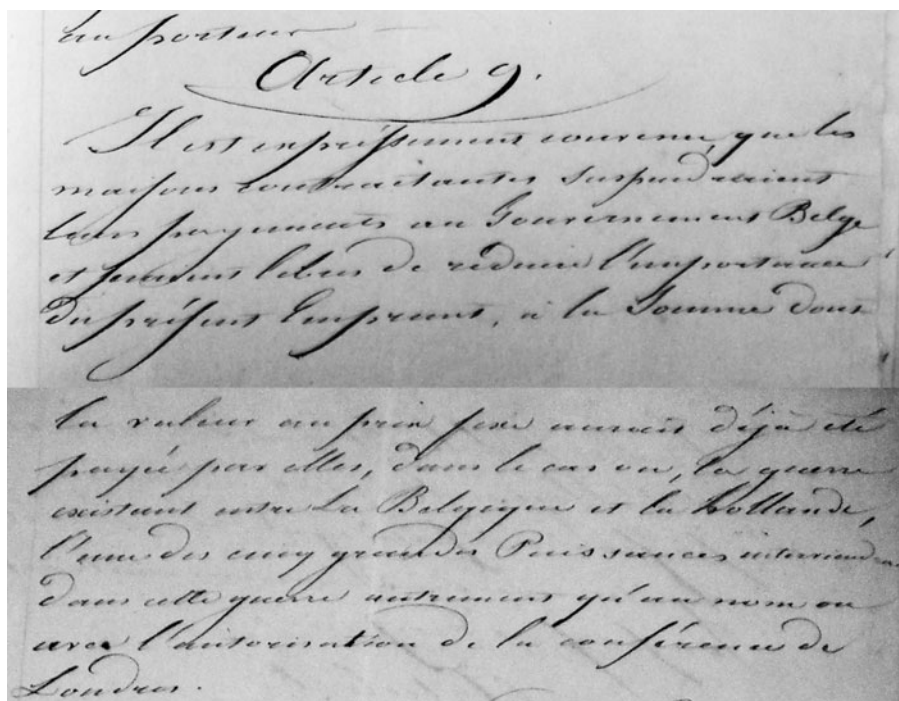 au porteur
Article 9.
Il est expressément convenu, que les
maisons contractantes suspendraient
leurs payements au Gouvernement Belge
et seraient libres de réduire l'importance
du présent Emprunt, à la Somme dont
la valeur au prix fixé aurait déjà été
payée par elles, dans le cas ou, la guerre
existant entre La Belgique et la Hollande,
l'une des cinq grandes Puissances interviendrait
dans cette guerre autrement qu'au nom ou
avec l'autorisation de la conférence de
Londres.